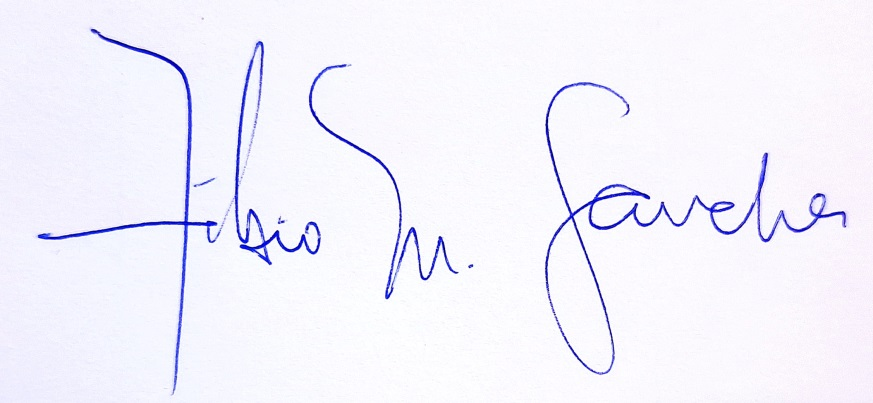 Fábio M. Sanches